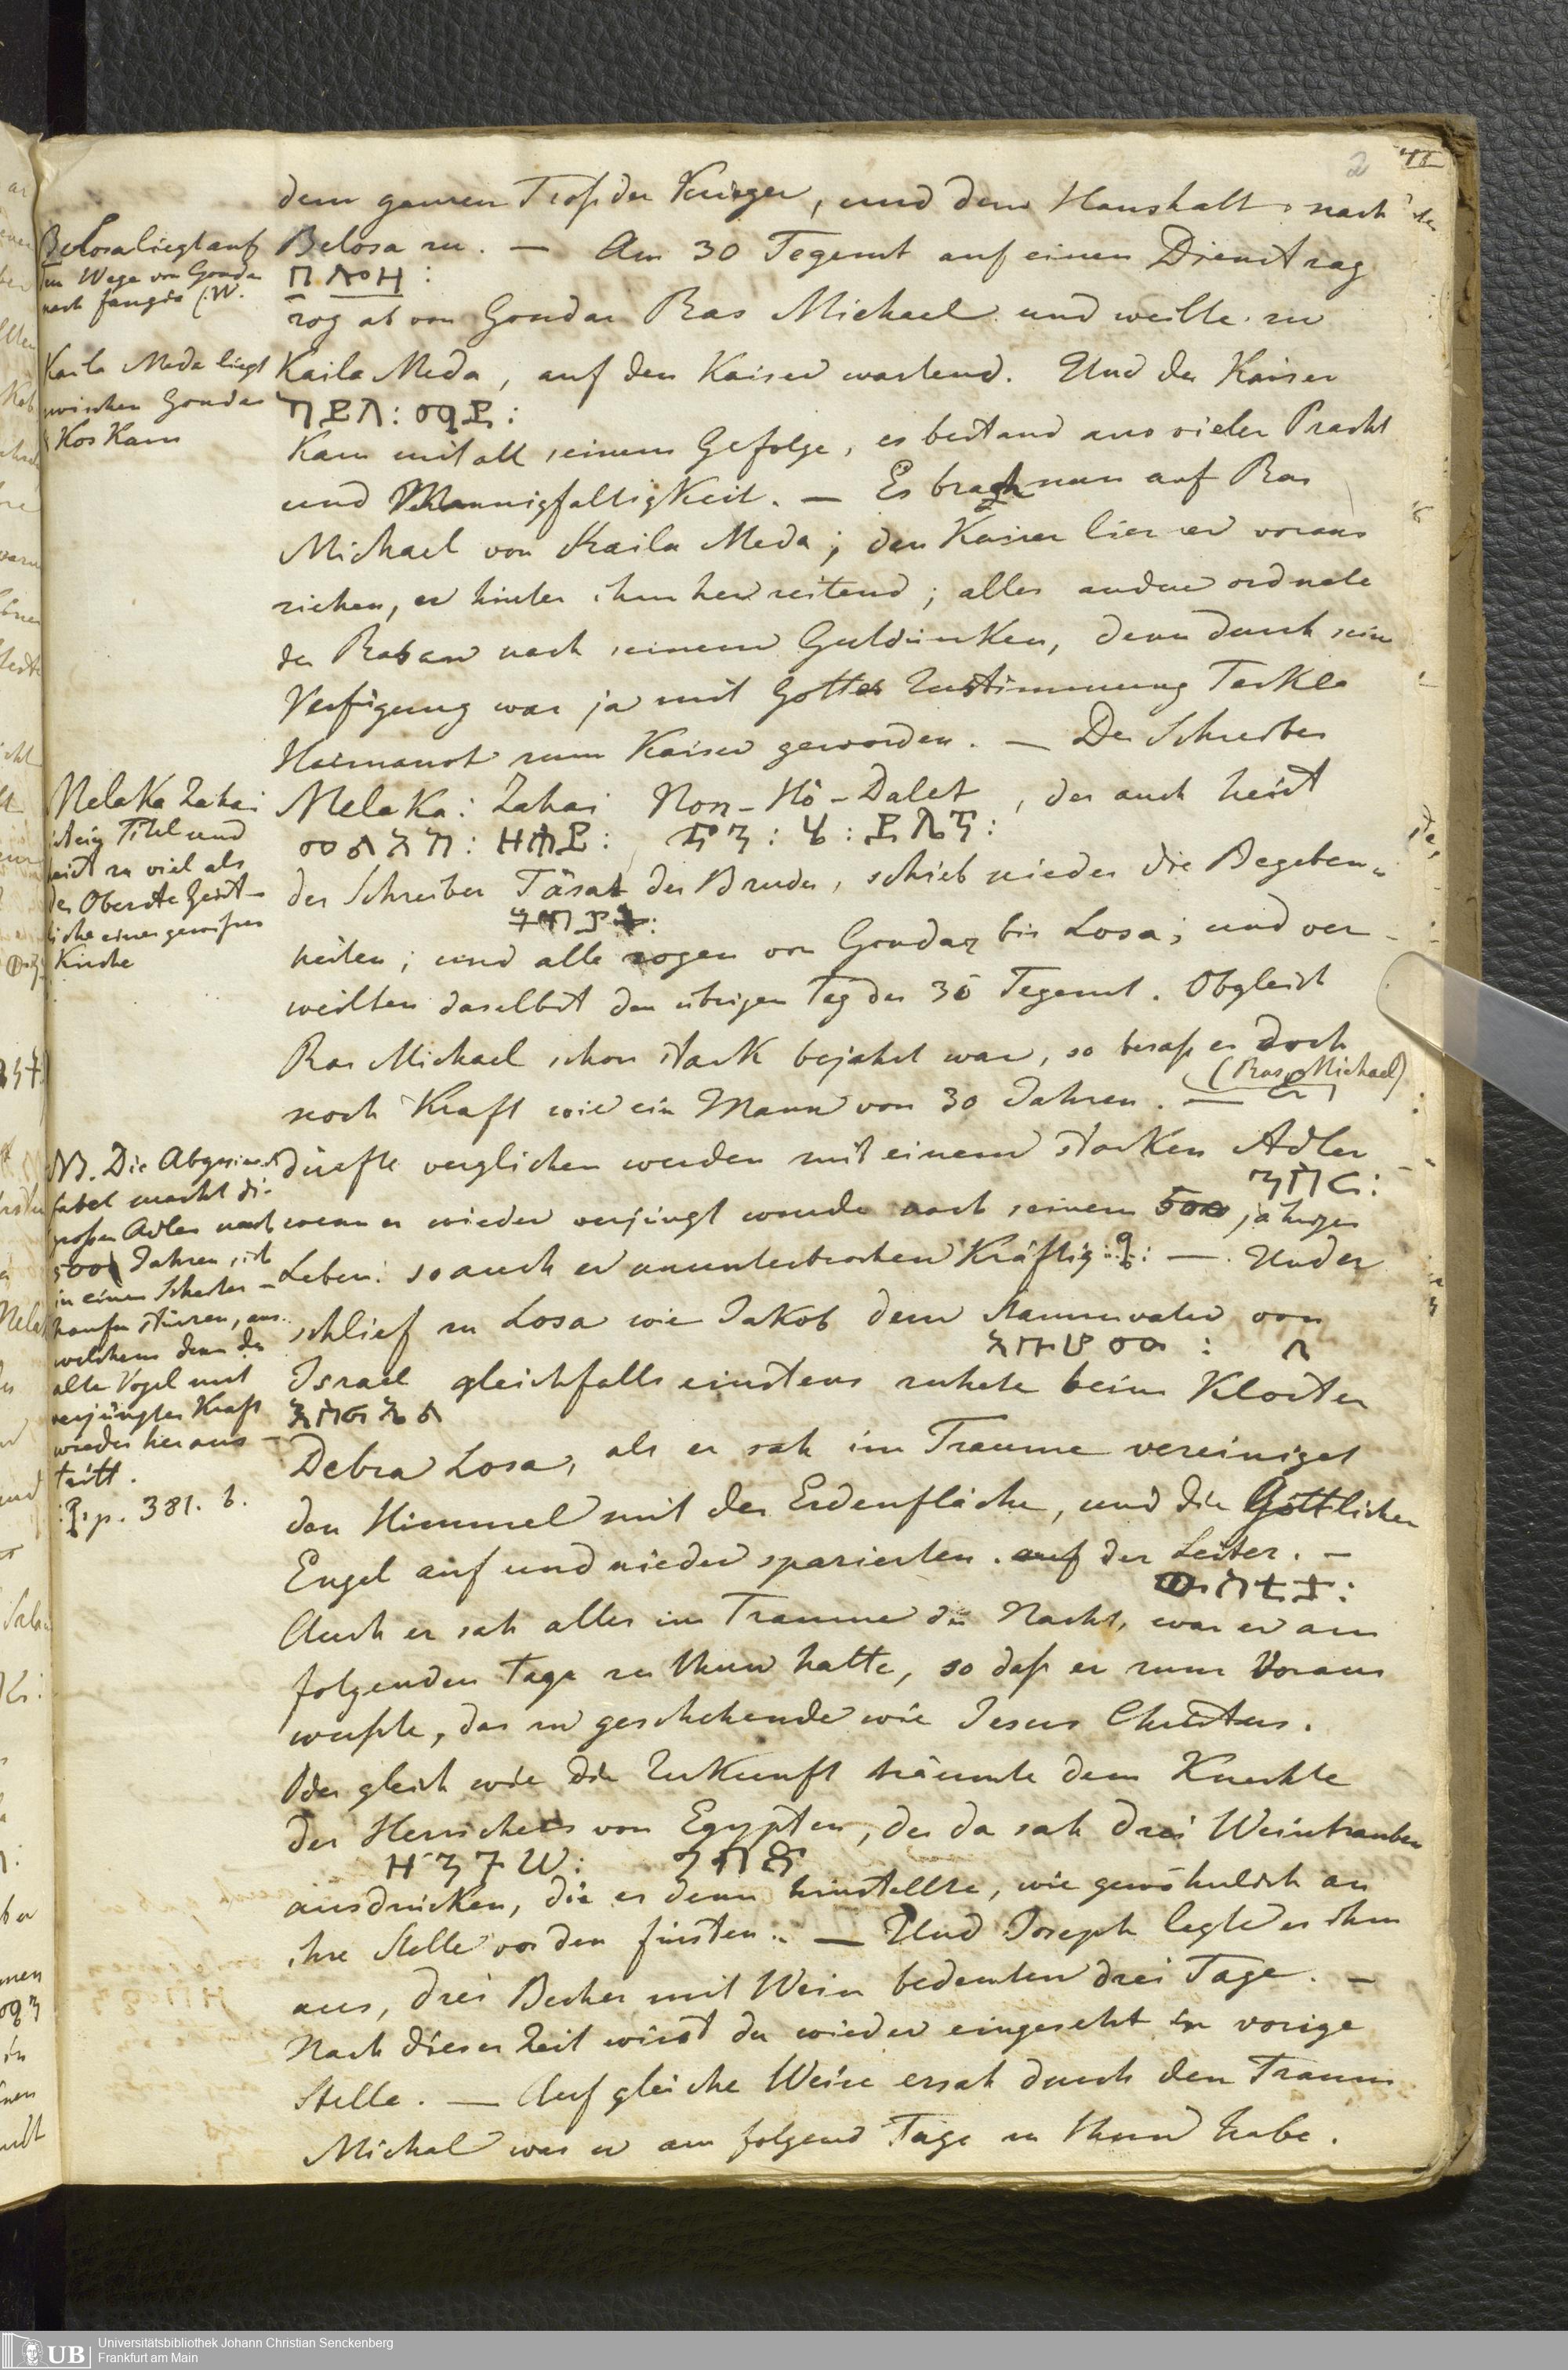 2
dem ganzen Troß der Krieger, und dem Haushalt nach
Belosa zu. — Am 30 Tegemt auf einen Dienstag
zog ab von Gondar Ras Michael und weilte zu
Kaila Meda, auf den Kaiser wartend. Und der Kaiser
Kam mit all seinem Gefolge, es bestand aus vieler Pracht
und Mannigfaltigkeit. — Es brach nun auf Ras
Michael von Kaila Meda; den Kaiser lies er voraus
ziehen, er hinter ihm her reitend; alles andre ordnete
der Ras an nach seinem Gutdünken, denn durch seine
Verfügung war ja mit Gottes Zustimmung Tekle
Haimanot zum Kaiser geworden. — Der Schreiber
Melaka: Zahai Non-Hö-Dalet, der auch heist
der Schreiber Täsat der Bruder, schrieb nieder die Begeben-
heiten; und alle zogen von Gondar bis Losa; und ver-
weilten daselbst den übrigen Tag des 30 Tegemt. Obgleich
Ras Michael schon stark bejahrt war, so besaß er doch
noch Kraft wie ein Mann von 30 Jahren. — Er (Ras Michael)
dürfte verglichen werden mit einem starken Adler
ንስር:
wenn er wieder verjüngt wurde nach seinem 500 jährigen
Leben: so auch er ununterbrochen Kräftig — Und er
schlief zu Losa wie Jakob dem Stammvater von
Israel gleichfalls einstens ruhete beim Kloster
Debra Losa, als er sah im Traume vereiniget
den Himmel mit der Erdenfläche, und die Göttlichen
Engel auf und nieder spazierten auf der Leiter. —
Auch er sah alles im Traume die Nacht, was er am
folgenden Tage zu thun hatte, so daß er zum Voraus
wußte, das zu geschehende wie Jesus Christus.
Oder gleich wie die Zukunft träumte dem Knechte
des Herrschers von Egypten, der da sah drei Weintrauben
ausdrücken, die er denn hinstellte, wie gewöhnlich an
ihre Stelle vor den fürsten. — Und Joseph legte es ihm
aus, drei Becher mit Wein bedeuten drei Tage. —
Nach dieser Zeit wirst du wieder eingesetzt in vorige
Stelle. — Auf gleiche Weise ersah durch den Traum
Michal was er am folgend Tage zu thun habe.
Belosa liegt auf
dem Wege von Gondar
nach
Kaila Meda liegt
zwischen Gondar
Kos Kam
Melaka Zahai
ist ein Titel und
heist so viel als
der Oberste Geist-
liche einer gewissen
Kirche
NB. Die
fabel macht die
großen Adler nach
500 Jahren, sich
in einen Scheiter-
haufen stürzen, aus
welchem denn der
alte Vogel mit
verjüngter Kraft
wieder heraus-
tritt.
p. 381. b.
UB
Universitätsbibliothek Johann Christian Senckenberg
Frankfurt am Main